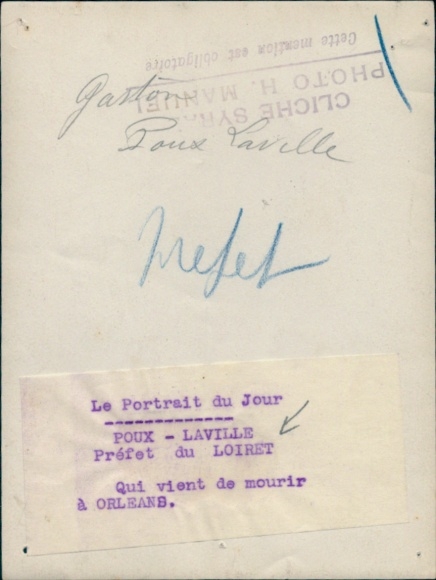 Cette mention est obligatoire
PHOTO H. MANUEL
CLICHÉ
Gaston
Poux Laville
Prefet
Le Portrait du Jour
-------------
POUX - LAVILLE
Préfet du LOIRET
Qui vient de mourir
à ORLEANS.